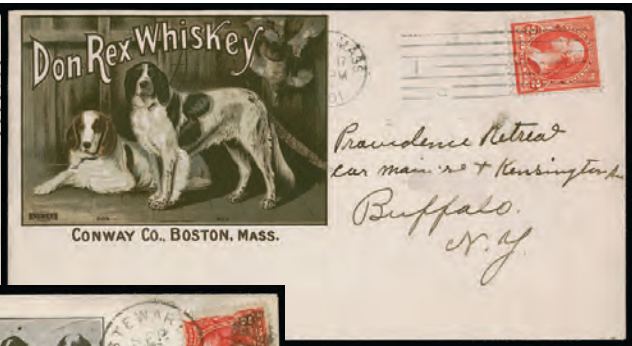 Don Rex Whiskey
CONWAY CO., BOSTON, MASS.
MASS
17
PM
01
Providence Retreat
car main st + Kensington
Buffalo.
N.Y.
STEWAR